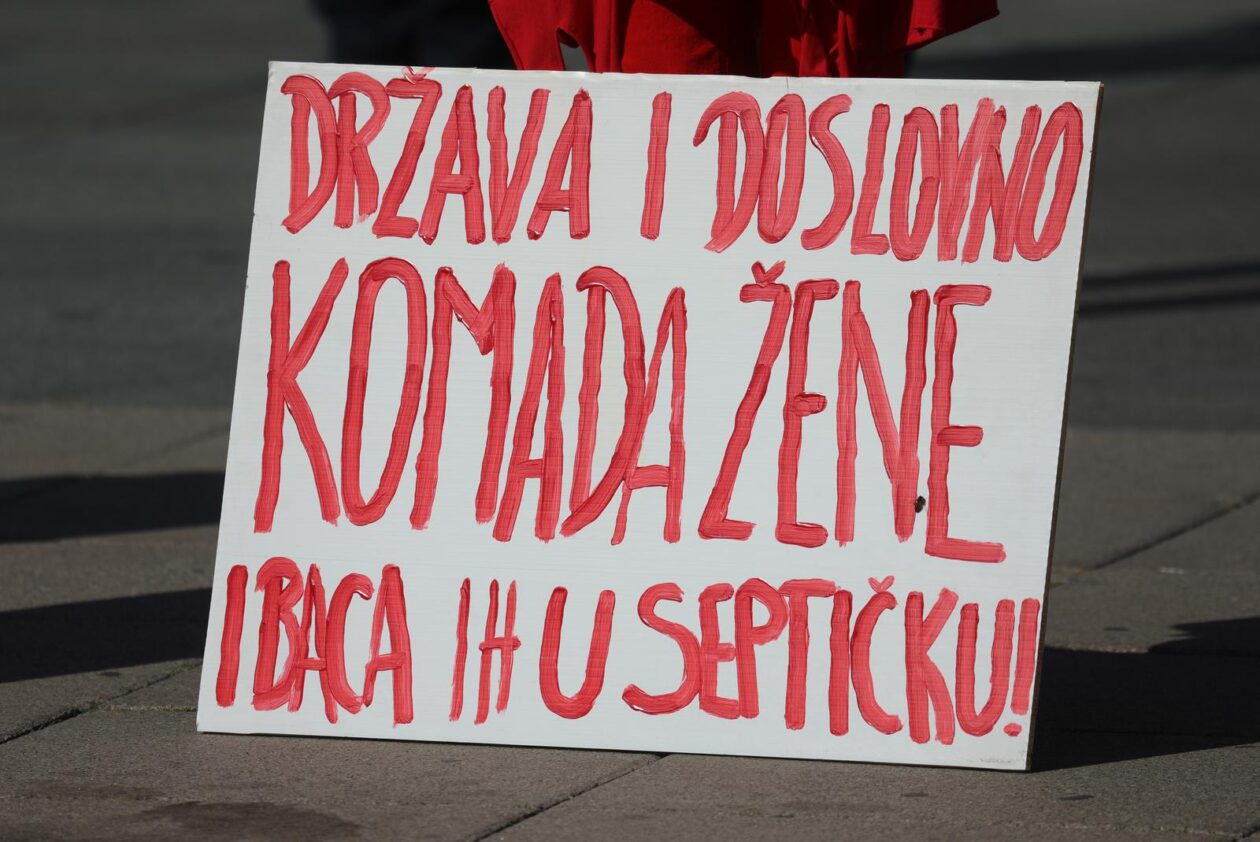 DRŽAVA I DOSLOVNO
KOMADA ŽENE
I BACA IH U SEPTIČKU!